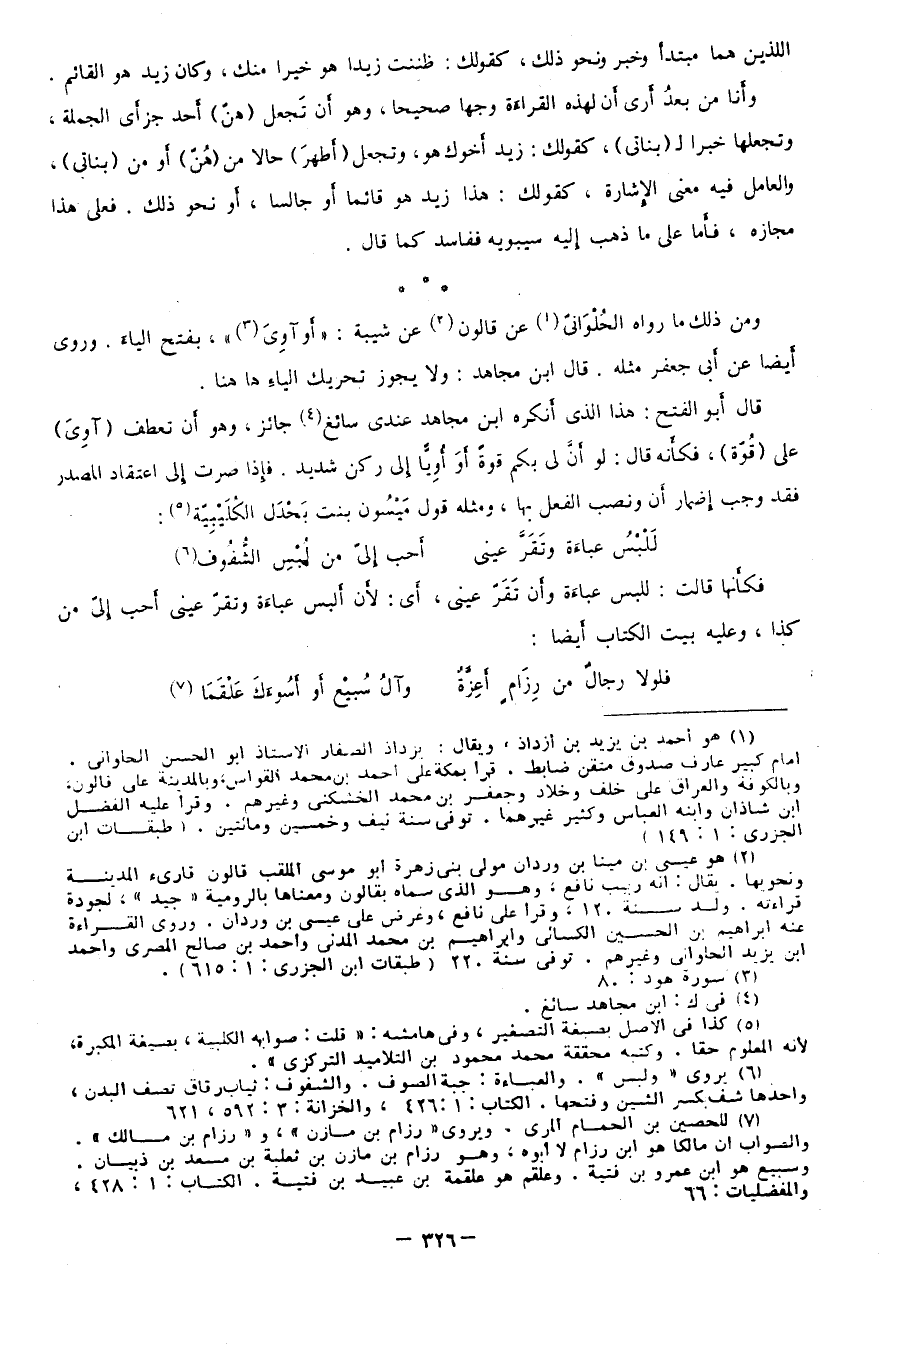 اللذين هما مبتدأ وخبر ونحو ذلك ، كقولك : ظننت زيدا هو خيرا منك ، وكان زيد هو القائم .
وأنا من بعدُ أرى أن لهذه القراءة وجها صحيحا ، وهو أن تَجعل (هنّ) أحد جزأى الجملة ،
وتجعلها خبرا لـ (بناتى) ، كقولك : زيد أخوك هو ، وتجعل (أطهرَ) حالا من (هُنّ) أو من (بناتى) ،
والعامل فيه معنى الإشارة ، كقولك : هذا زيد هو قائما أو جالسا ، أو نحو ذلك . فعلى هذا
مجازه ، فأما على ما ذهب إليه سيبويه ففاسد كما قال .
* * *
ومن ذلك ما رواه الحُلْوَانىّ(١) عن قالون(٢) عن شيبة : « أو آوِىَ(٣) » ، بفتح الياء . وروى
أيضا عن أبى جعفر مثله . قال ابن مجاهد : ولا يجوز تحريك الياء ها هنا .
قال أبو الفتح : هذا الذى أنكره ابن مجاهد عندى سائغ(٤) جائز ، وهو أن تعطف (آوِىَ)
على (قُوّة) ، فكأنه قال : لو أنَّ لى بكم قوةً أَوْ أُوِيًّا إلى ركن شديد . فإذا صرت إلى اعتقاد المصدر
فقد وجب إضمار أن ونصب الفعل بها ، ومثله قول مَيْسُون بنت بَحْدَل الكُلَيْبِيّة(٥) :
لَلُبْسُ عباءة وتَقَرَّ عينى أحب إلىّ من لُبْسِ الشُّفُوف(٦)
فكأنها قالت : للبس عباءة وأن تَقَرّ عينى ، أى : لأن ألبس عباءة وتقرّ عينى أحب إلىّ من
كذا ، وعليه بيت الكتاب أيضا :
فلولا رجالٌ من رِزَامٍ أَعِزَّةٌ وآلُ سُبيْعٍ أو أَسُوءَكَ عَلْقَمَا (٧)
(١) هو أحمد بن يزيد بن أزداذ ، ويقال : يزداذ الصفار الأستاذ أبو الحسن الحلوانى .
إمام كبير عارف صدوق متقن ضابط . قرأ بمكة على أحمد بن محمد القواس ، وبالمدينة على قالون ،
وبالكوفة والعراق على خلف وخلاد وجعفر بن محمد الخشكنى وغيرهم . وقرأ عليه الفضل
ابن شاذان وابنه العباس وكثير غيرهما . توفى سنة نيف وخمسين ومائتين . ( طبقات ابن
الجزرى : ١ : ١٤٩ )
(٢) هو عيسى بن مينا بن وردان مولى بنى زهرة أبو موسى الملقب قالون قارىء المدينة
ونحويها . يقال : انه ربيب نافع ، وهو الذى سماه بقالون ومعناها بالرومية « جيد » ، لجودة
قراءته . ولد سنة ١٢٠ ، وقرأ على نافع ، وعرض على عيسى بن وردان . وروى القراءة
عنه ابراهيم بن الحسين الكسائى وابراهيم بن محمد المدنى وأحمد بن صالح المصرى وأحمد
ابن يزيد الحلوانى وغيرهم . توفى سنة ٢٢٠ ( طبقات ابن الجزرى : ١ : ٦١٥ ) .
(٣) سورة هود : ٨٠
(٤) فى ك : ابن مجاهد سائغ .
(٥) كذا فى الأصل بصيغة التصغير ، وفى هامشه : « قلت : صوابه الكلبية ، بصيغة المكبرة ،
لأنه المعلوم حقا . وكتبه محققة محمد محمود بن التلاميد التركزى » .
(٦) يروى « ولبس » . والعباءة : جبة الصوف . والشفوف : ثياب رقاق تصف البدن ،
واحدها شف بكسر الشين وفتحها . الكتاب : ١ : ٤٢٦ ، والخزانة : ٣ : ٥٩٢ ، ٦٢١
(٧) للحصين بن الحمام المرى . ويروى « رزام بن مازن » ، و « رزام بن مالك » .
والصواب ان مالكا هو ابن رزام لا أبوه ، وهو رزام بن مازن بن ثعلبة بن سعد بن ذبيان .
وسبيع هو ابن عمرو بن فتية . وعلقم هو علقمة بن عبيد بن فتية . الكتاب : ١ : ٤٢٨ ،
والمفضليات : ٦٦
— ٣٢٦ —